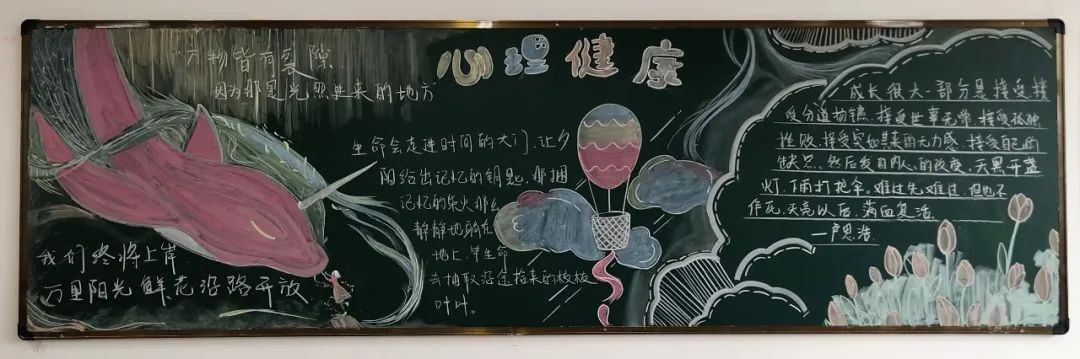 心理健康
万物皆有裂隙
因为那是光照进来的地方
我们终将上岸
万里阳光鲜花沿路开放
生命会走进时间的大门，让夕
阳给出记忆的钥匙，那捆
记忆的柴火那么
静静地躺在
地上，毕生命
去抽取沿途捡来的枝枝
叶叶。
成长很大一部分是接受，接
受分道扬镳，接受世事无常，接受孤独
挫败，接受突如其来的无力感，接受自己的
缺点，然后发自内心的改变，天黑开盏
灯，下雨打把伞，难过先难过，但也不
作死，天亮以后，满血复活
—卢思浩